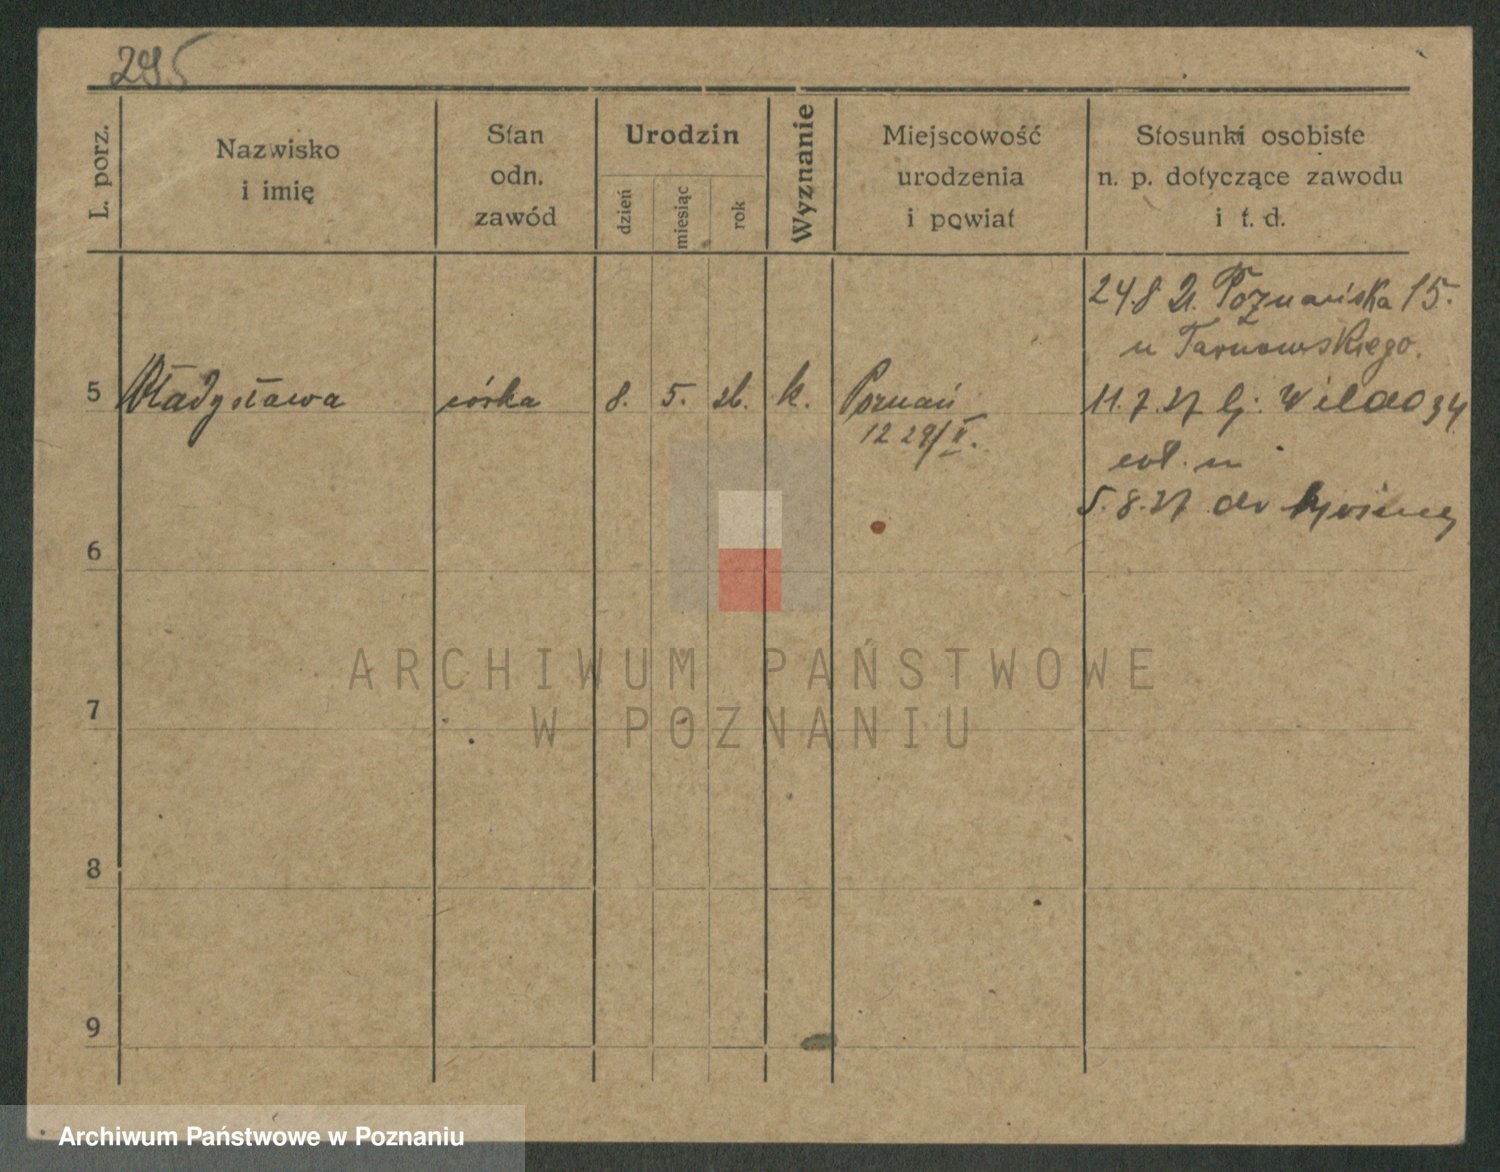 295
L. porz.
Nazwisko
i imię
Stan
odn.
zawód
Urodzin
dzień
miesiąc
rok
Wyznanie
Miejscowość
urodzenia
i powiat
Stosunki osobiste
n. p. dotyczące zawodu
i t. d.
24.8 21. Poznańska 15.
u Tarnowskiego.
5 Władysława córka 8. 5. 26. k. Poznań 11.7.27 Wilda 94
12 29/II.
u
5.8.27 do
6
7
8
9
ARCHIWUM PAŃSTWOWE
W POZNANIU
Archiwum Państwowe w Poznaniu